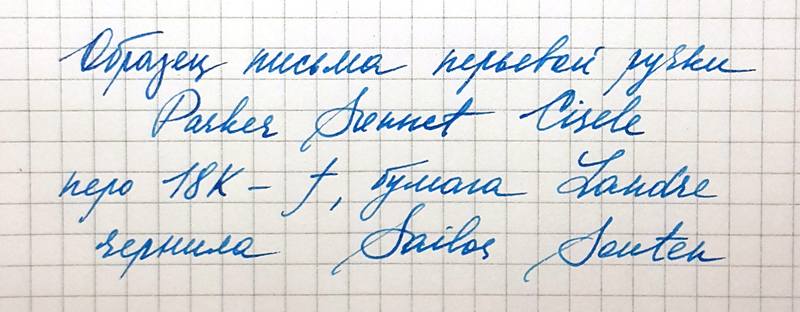 Образец письма перьевой ручки
Parker Sonnet Cisele
перо 18K – f, бумага Landre
чернила Sailor Souten